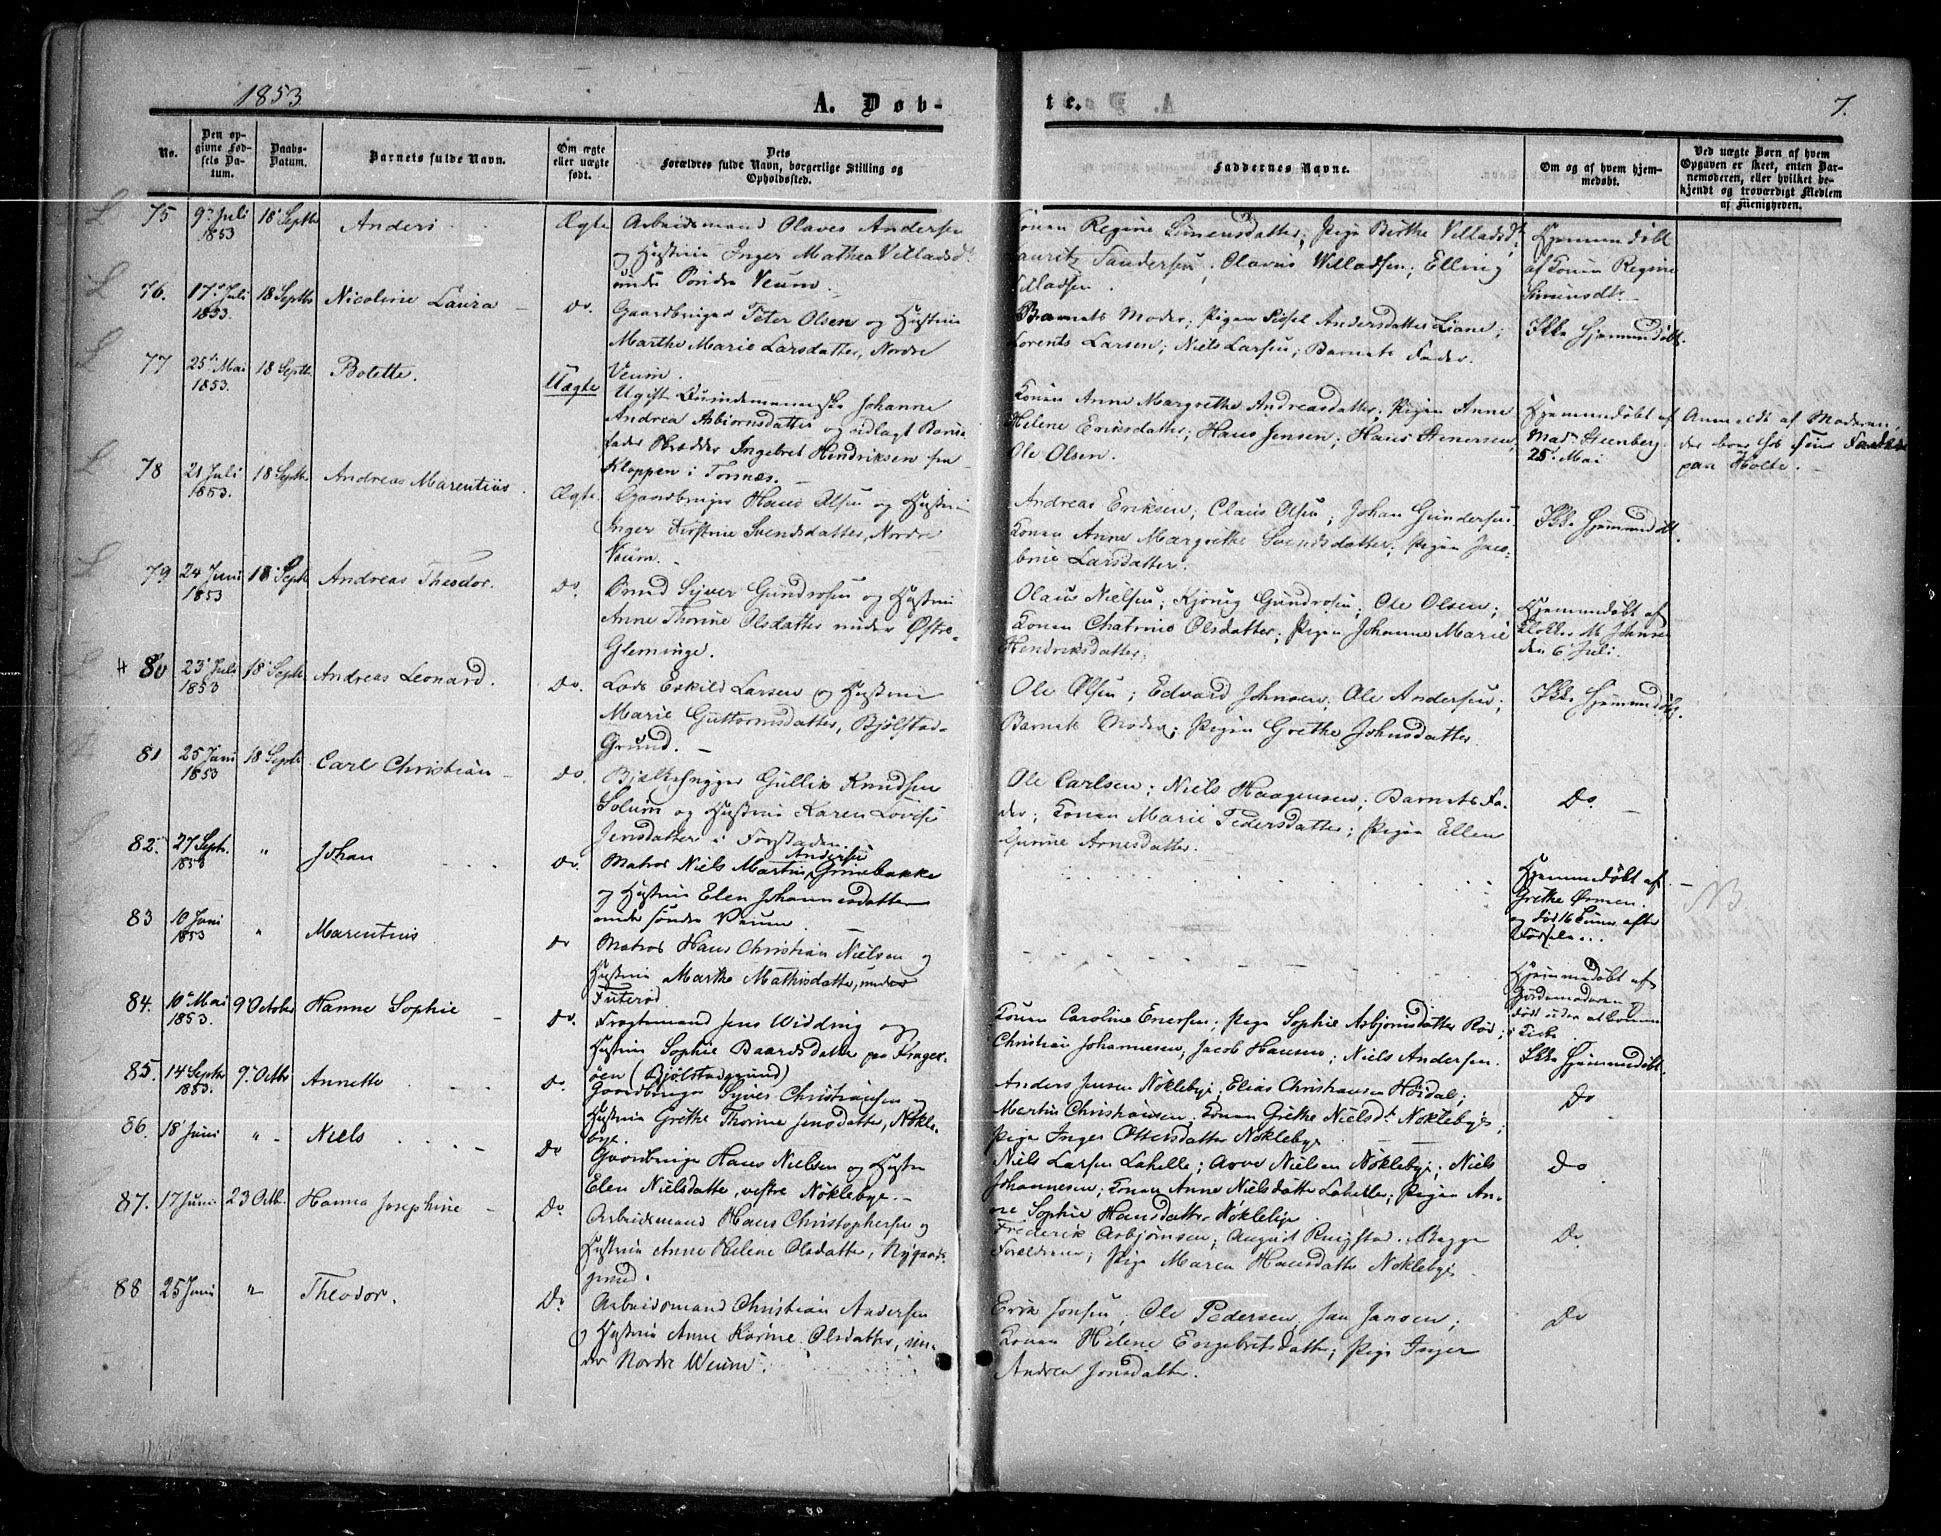 1853
A. Døb-
te.
7.
No.
Den op-
givne Fød-
sels Da-
tum.
Daabs-
Datum.
Barnets fulde Navn.
Om ægte
eller uægte
født.
Dets
Forældres fulde Navn, borgerlige Stilling og
Opholdssted.
Faddernes Navne.
Om og af hvem hjem-
medøbt.
Ved uægte Børn af hvem
Opgaven er skeet, enten Bar-
nemoderen, eller hvilket be-
kjendt og troværdigt Medlem
af Menigheden.
75 9de Juli 1853 18 Septbr Anders Ægte
Arbeidsmand Olaves Andersen
og Hustrue Inger Mathea Villadsdt.
under Søndre Veum.
Konen Regine Simensdatter; Pige Birthe Villadsdt.
Lauritz Sandersen; Olavus Willadsen; Elling
Villadsen.
Hjemmedøbt
af Konen Regine
Simensdt.
76. 17de Juli 1853. 18 Septbr Nicoline Laura Do.
Gaardbruger Peter Olsen og Hustrue
Marthe Marie Larsdatter, Nordre
Veum.
Barnets Moder; Pigen Sissel Andersdatter Liane;
Lorents Larsen; Niels Larsen; Barnets Fader.
Ikke Hjemmedøbt.
77 25de Mai 1853. 18 Septbr. Bolette. Uægte
Ugift Quindemenneske Johanne
Andrea Asbiornsdatter og udlagt Barne
fader Skrædder Ingebret Hendriksen fra
Kloppen i Torsnes.
Konen Anne Margrethe Andreasdatter; Pigen Anne
Helene Eriksdatter; Hans Jensen; Hans Stenersen;
Ole Olsen.
Hjemmedøbt af
Madm Steenberg
25. Mai
Anmeldt af Moderen,
der boer hos sine Forældre
paa Holte.
78 21 Juli 1853. 18 Septbr. Andreas Marentius. Ægte.
Gaardbruger Hans Olsen og Hustrue
Inger Kirstine Svendsdatter, Nordre
Veum.
Andreas Eriksen; Claus Olsen; Johan Gundersen
Konen Anne Margrethe Svendsdatter; Pigen Jaco-
bine Larsdatter.
Ikke Hjemmedøbt.
79 24 Juni 1853 18 Septb. Andreas Theodor. Do.
Syver Gundrosen og Hustrue
Anne Thorine Olsdatter under Østre
Gleminge.
Olaus Nielsen; Gundrosen; Ole Olsen;
Konen Chatrine Olsdatter; Pigen Johanne Marie
Hendriksdatter;
Hjemmedøbt af
Klokker M. Johnsen
den 6 Juli.
80 23 Juli 1853 18 Septb. Andreas Leonard. Do.
Lods Eskild Larsen og Hustrue
Marie Guttormsdatter, Bjølstad-
Grund.
Ole Olsen; Edvard Johnsen; Ole Andersen;
Barnets Moder; Pigen Grethe Johnsdatter.
Ikke Hjemmedøbt.
81 25 Juni 1853 18 Septb. Carl Christian Do.
Bjælkehugger Gullik Knudsen
Solum og Hustrue Karen Lovise
Jensdatter i Forstaden.
Ole Carlsen; Niels Haagensen; Barnets Fa-
der; Konen Marie Pedersdatter; Pigen Ellen
Gurine Arnesdatter.
Do.
82. 27 Septb. 1853 " Johan Do.
Andersen
Matros Niels Martin Grinebakke
og Hustrue Elen Johannesdatter
under søndre Veum
Hjemmedøbt af
Grethe Osmen.
og død 16 Timer efter
Fødselen...
NB.
83 10 Juni 1853 " Marentius Do
Matros Hans Christian Nielsen og
Hustrue Marthe Mathisdatter, under
Futerød
Hjemmedøbt af
Jordemoderen og
død uden at komme
i Kirke.
84. 10de Mai 1853. 9 October Hanne Sophie Do.
Fragtemand Jens Widding og
Hustrue Sophie Baardsdatter paa Krager-
øen (Bjølstadgrund)
Konen Caroline Enersen; Pige Sophie Asbjørnsdatter Rød;
Christian Johannesen; Jacob Hansen; Niels Andersen.
Ikke Hjemmedøbt.
85. 14 Septbr 1853. 9. Octbr Annette Do.
Gaardbruger Syver Christiansen og
Hustrue Grethe Thorine Jensdatter, Nøkle-
bye.
Anders Jensen Nøklebye; Elias Christiansen Hørdal;
Martin Christiansen; Konen Grethe Nielsdt. Nøklebye;
Pige Inger Ottersdatter Nøklebye
Do
86. 18 Juni " Niels Do
Gaardbruger Hans Nielsen og Hustru
Elen Nielsdatter, vestre Nøklebye.
Niels Larsen Lahelle; Arve Nielsen Nøklebye; Niels
Johannesen; Konen Anne Nielsdatter Lahelle; Pigen An-
ne Sophie Hansdatter Nøklebye
Do
87. 17 Juni 23 Octbr. Hanna Josephine Do.
Arbeidsmand Hans Christophersen og
Hustrue Anne Helene Olsdatter, Nygaards-
grund.
Frederik Asbjørnsen; August Ringstad. Begge
Forældrene; Pige Maren Hansdatter Nøklebye
Do.
88 25 Juni " Theodor. Do.
Arbeidsmand Christian Andersen
og Hustrue Anne Karine Olsdatter, un-
der Nordre Weum.
Erik Jonsen; Ole Pedersen, Jan Jansen;
Konen Helene Engebretsdatter; Pige Inger
Andrea Jonsdatter.
Do